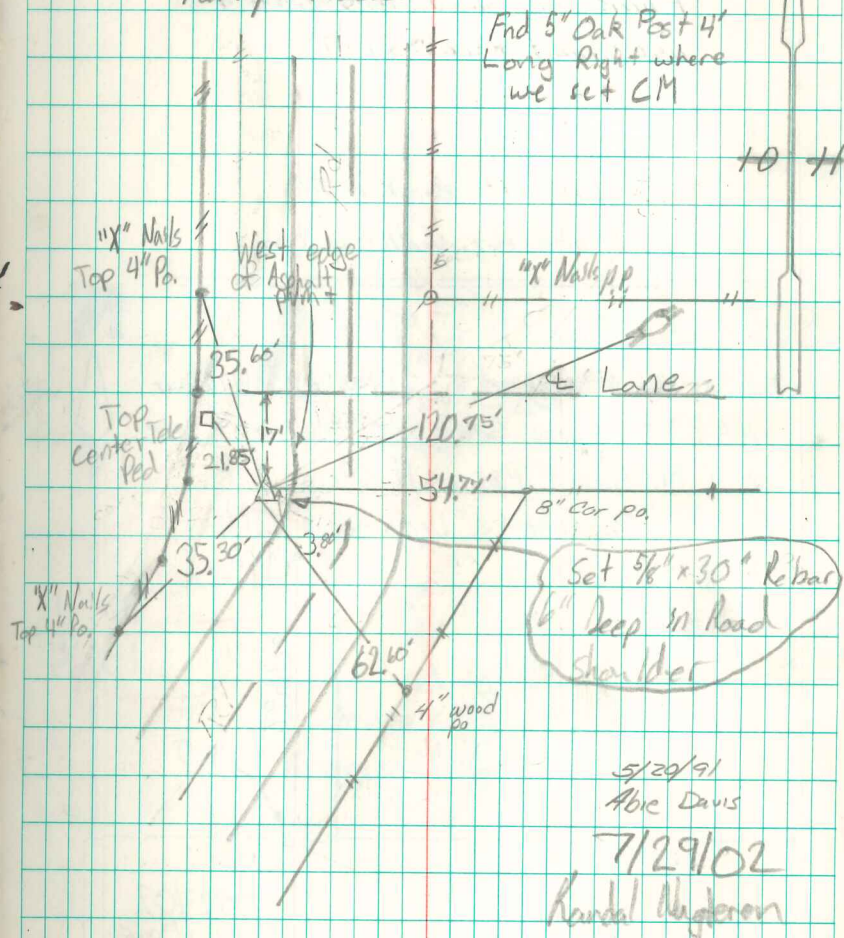 Fnd 5" Oak Post 4'
Long Right where
we set CM
10 11
Rd
"X" Nails
Top 4" Po.
West edge
of Asphalt
5'
"X" Nails p.p.
35.60'
℄ Lane
17'
120.75'
Top
Center Tele
Ped
21.85'
54.77'
8" Cor po.
35.30'
3.80'
"X" Nails
Top 4" Po.
Set 5/8" x 30" Rebar
6" Deep in Road
shoulder
62.60'
Rd
4" wood
po
5/20/91
Abie Davis
7/29/02
Randal